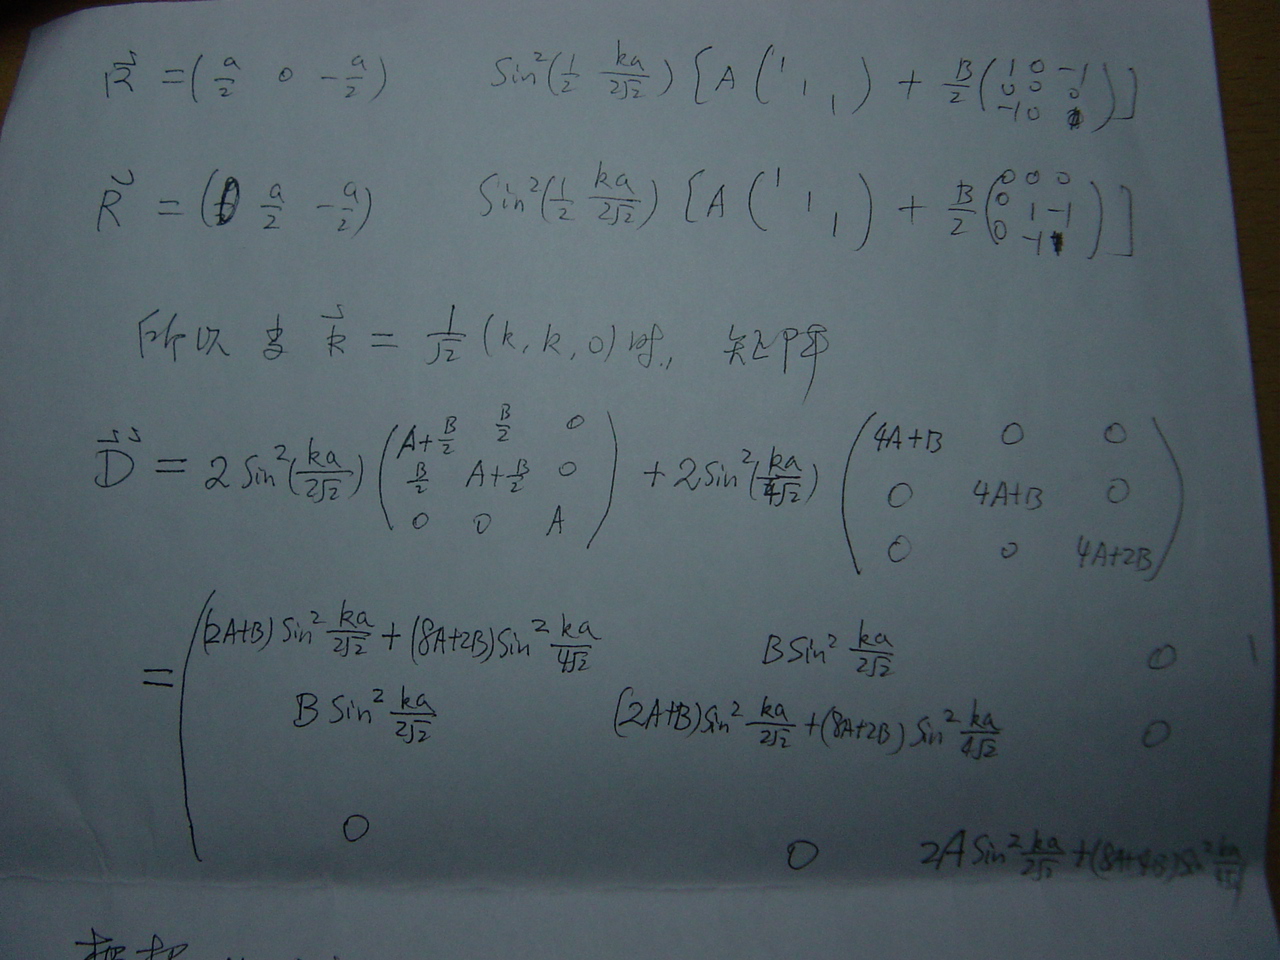 R⃗ = (a/2 0 -a/2) Sin²(1/2 ka/2√2) [A (1 1 1) + B/2 (1 0 -1 0 0 0 -1 0 1)]
R⃗ = (0 a/2 -a/2) Sin²(1/2 ka/2√2) [A (1 1 1) + B/2 (0 0 0 0 1 -1 0 -1 1)]
所以 当 k⃗ = 1/√2 (k, k, 0) 时, 矩阵
D⃗⃗ = 2 Sin²(ka/2√2) (A+B/2 B/2 0 B/2 A+B/2 0 0 0 A) + 2 Sin²(ka/4√2) (4A+B 0 0 0 4A+B 0 0 0 4A+2B)
= ((2A+B) Sin² ka/2√2 + (8A+2B) Sin² ka/4√2 B Sin² ka/2√2 0
B Sin² ka/2√2 (2A+B) Sin² ka/2√2 + (8A+2B) Sin² ka/4√2 0
0 0 2A Sin² ka/2√2 + (8A+4B) Sin² ka/4√2